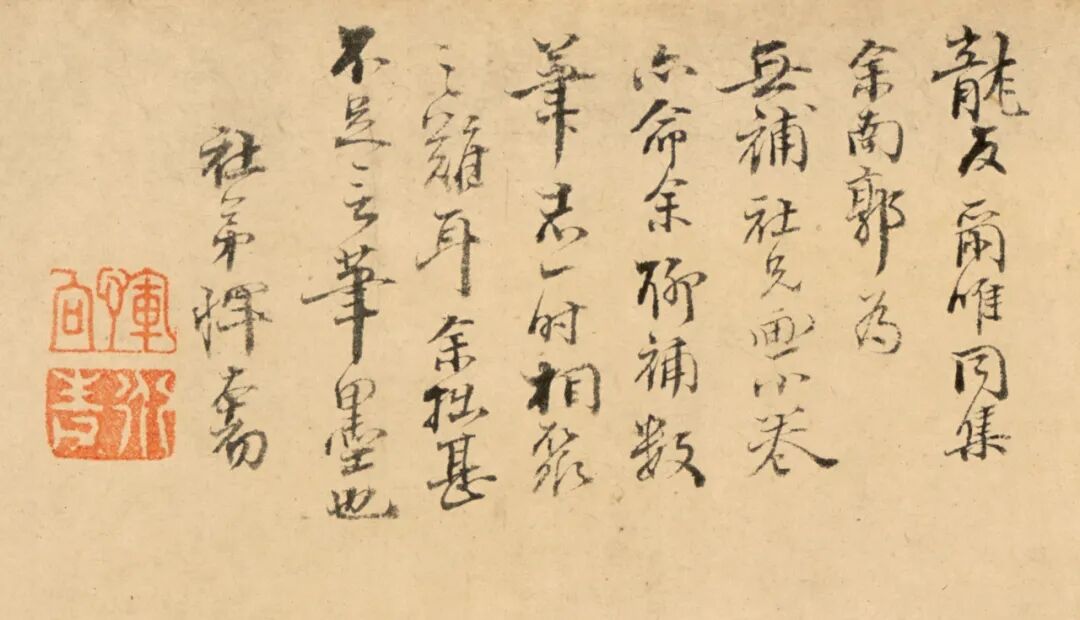 龍友爾唯同集
余南郭為
無補社兄画小卷
亦命余聊補數
筆志一时相聚
之難耳余拙甚
不足言筆墨也
社弟惲本初
惲向